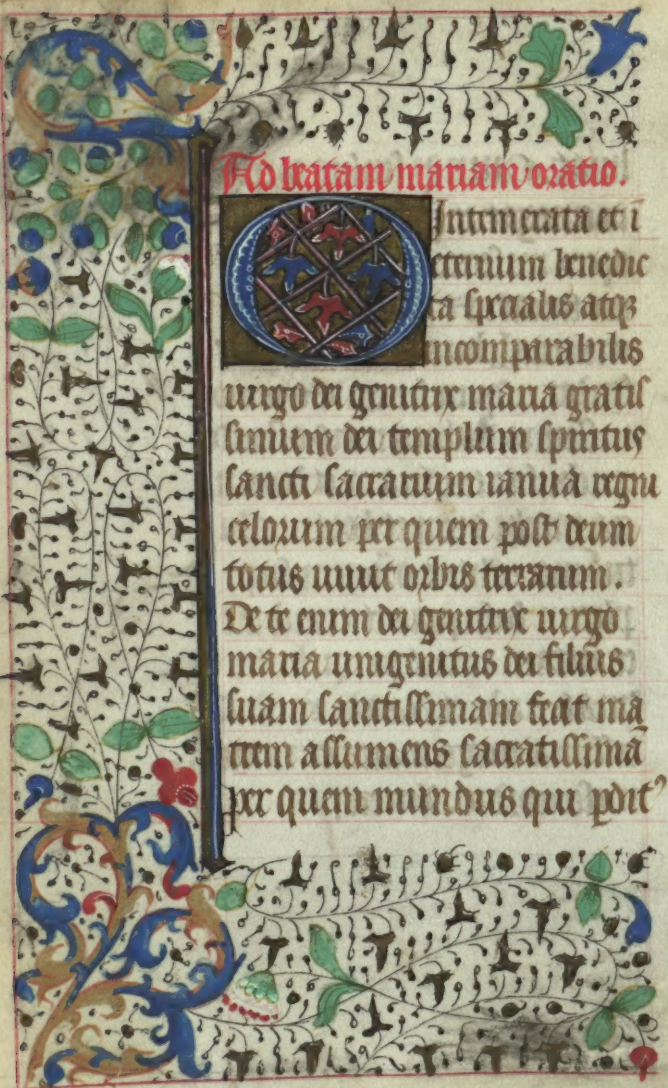 Ad beatam mariam oratio.
O Intemerata et ī
eternum benedic
ta specialis atqꝫ
incomparabilis
uirgo dei genitrix maria gratis
simum dei templum spiritus
sancti sacrarium ianua regni
celorum per quem post deum
totus uiuit orbis terrarum.
De te enim dei genitrix uirgo
maria unigenitus dei filius
suam sanctissimam fecit ma
trem assumens sacratissimā
per quem mundus qui ꝑdit⁹